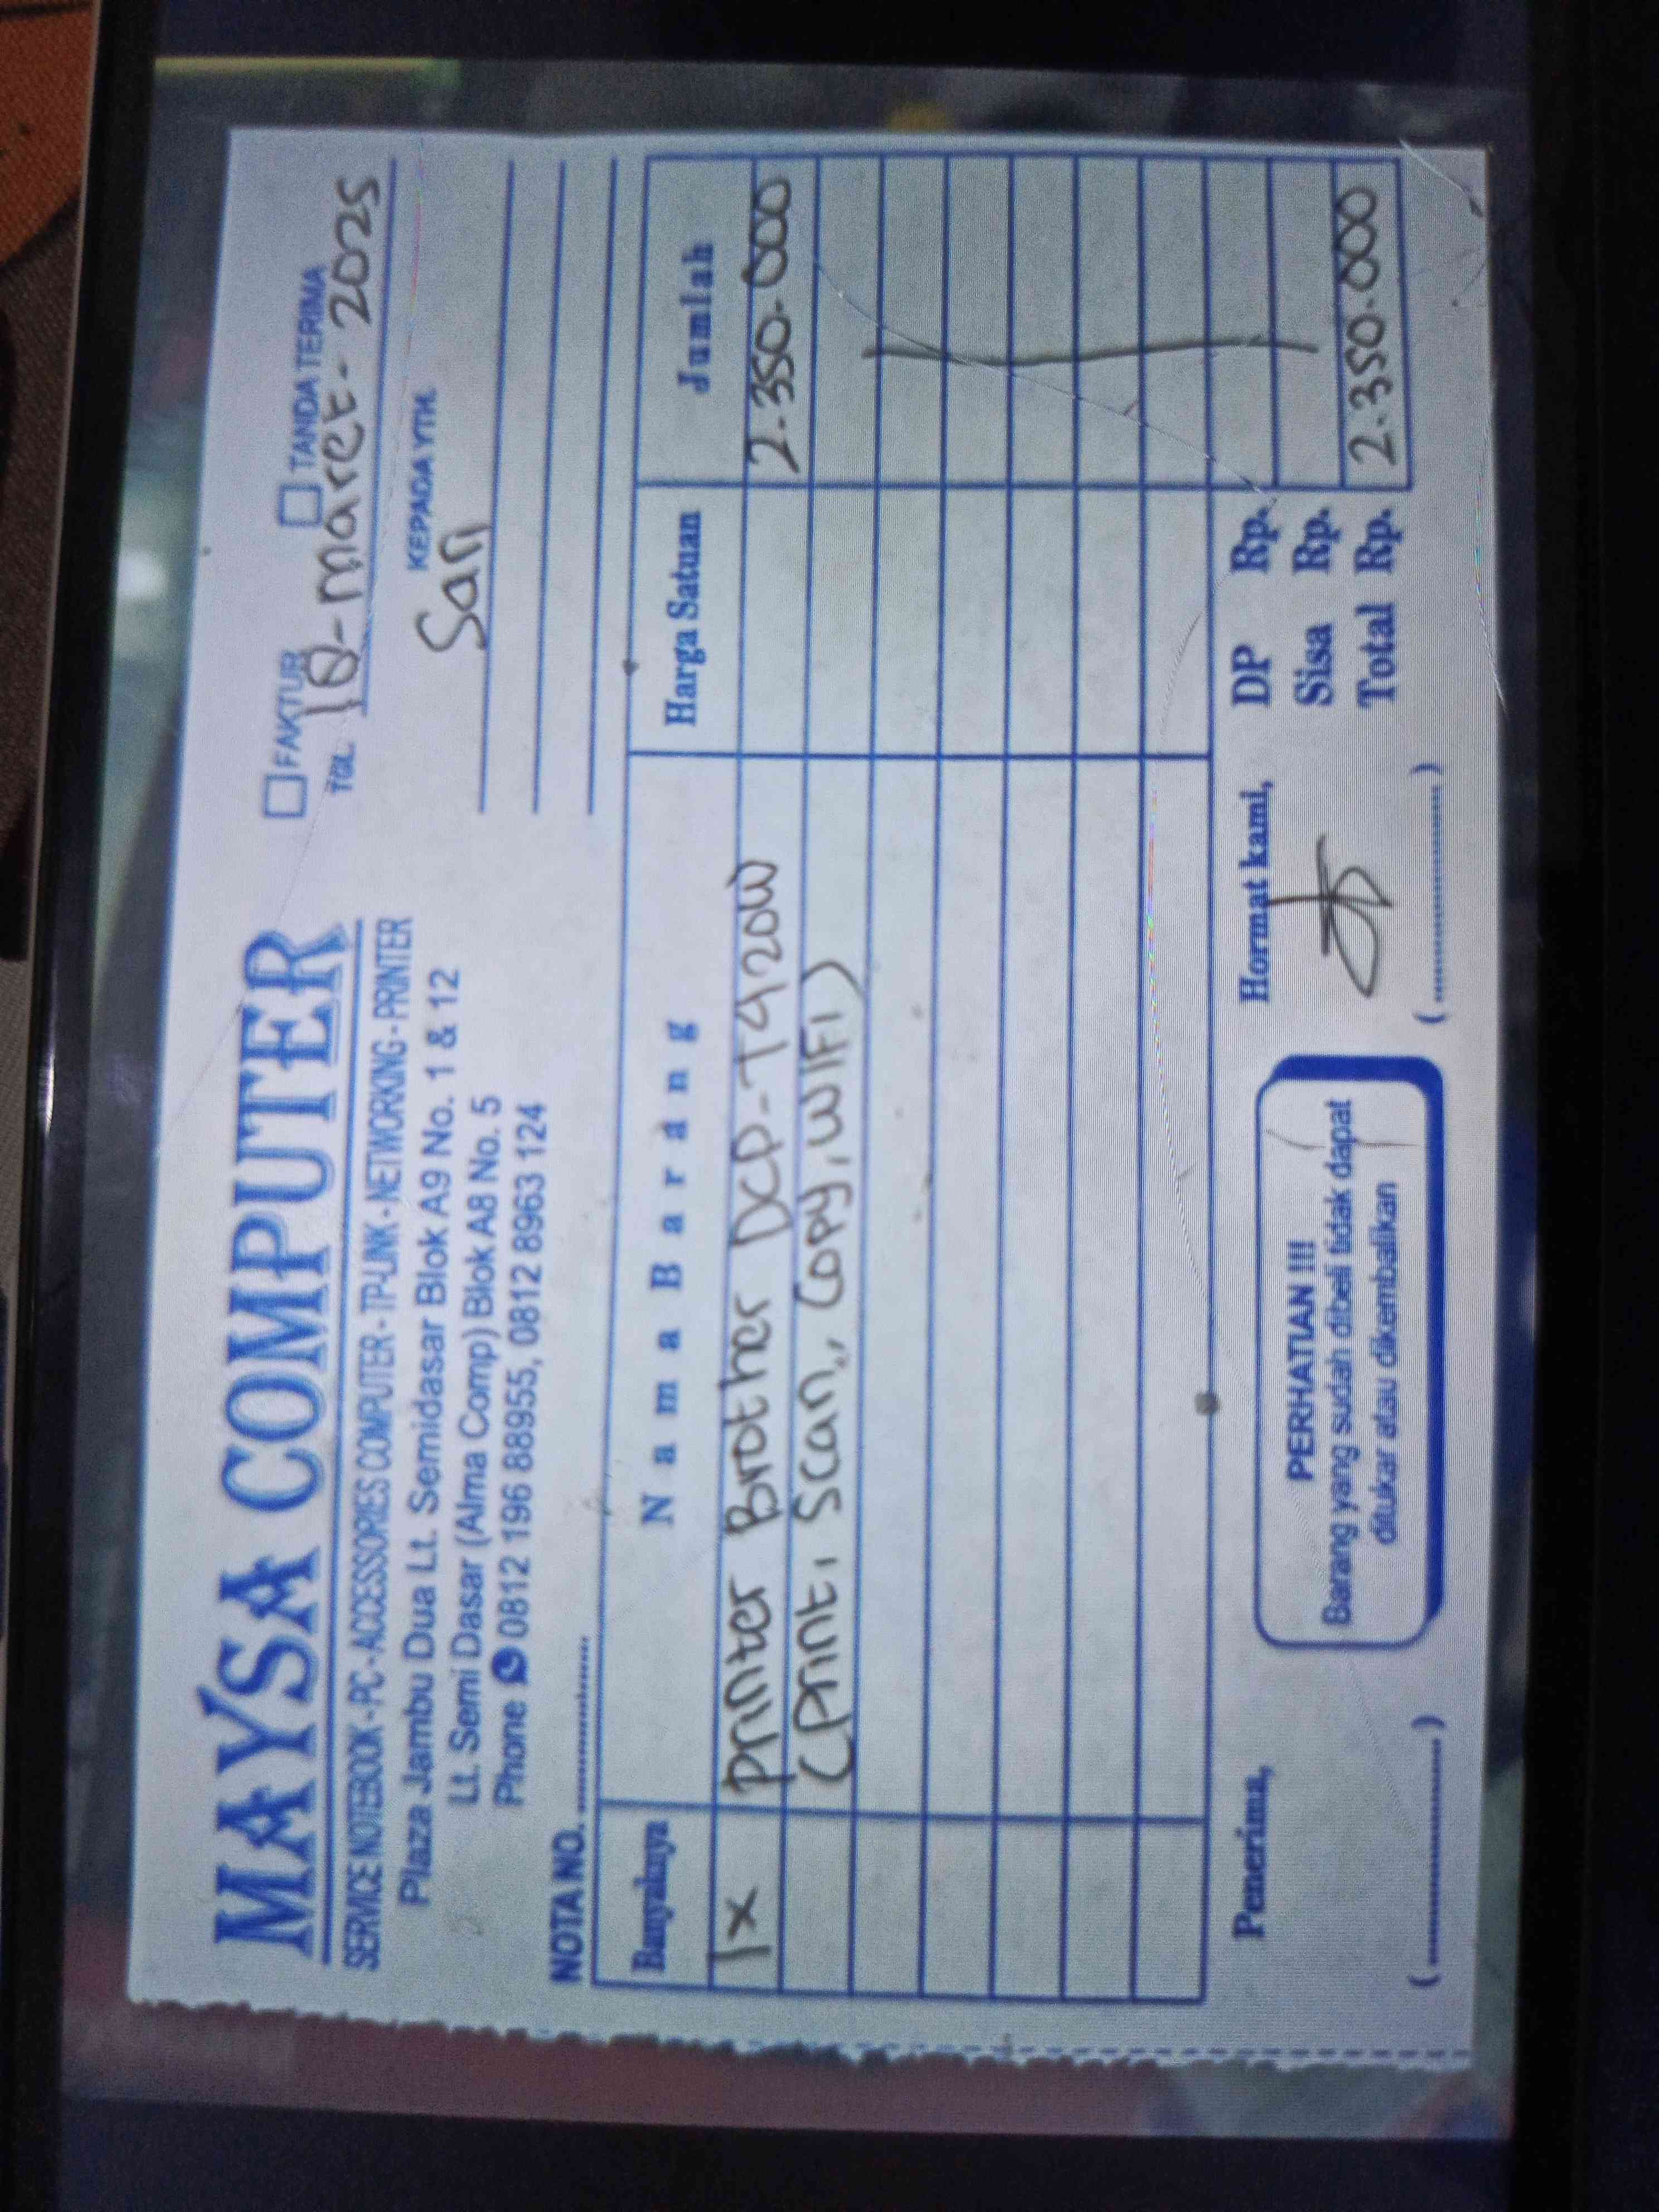 MAYSA COMPUTER
SERVICE NOTEBOOK - PC - ACCESSORIES COMPUTER - TP-LINK - NETWORKING - PRINTER
Plaza Jambu Dua Lt. Semidasar Blok A9 No. 1 & 12
Lt. Semi Dasar (Alma Comp) Blok A8 No. 5
Phone 0812 196 88955, 0812 8963 124
NOTA NO. ....................
FAKTUR TANDA TERIMA
TGL. 18-maret-2025
KEPADA YTH.
Sari
Banyaknya Nama Barang Harga Satuan Jumlah
1x printer Brother DCP-T420W 2.350.000
(print, scan, copy, WIFI)
Penerima,
(....................)
PERHATIAN !!!
Barang yang sudah dibeli tidak dapat
ditukar atau dikembalikan
Hormat kami,
(....................)
DP Rp.
Sisa Rp.
Total Rp. 2.350.000